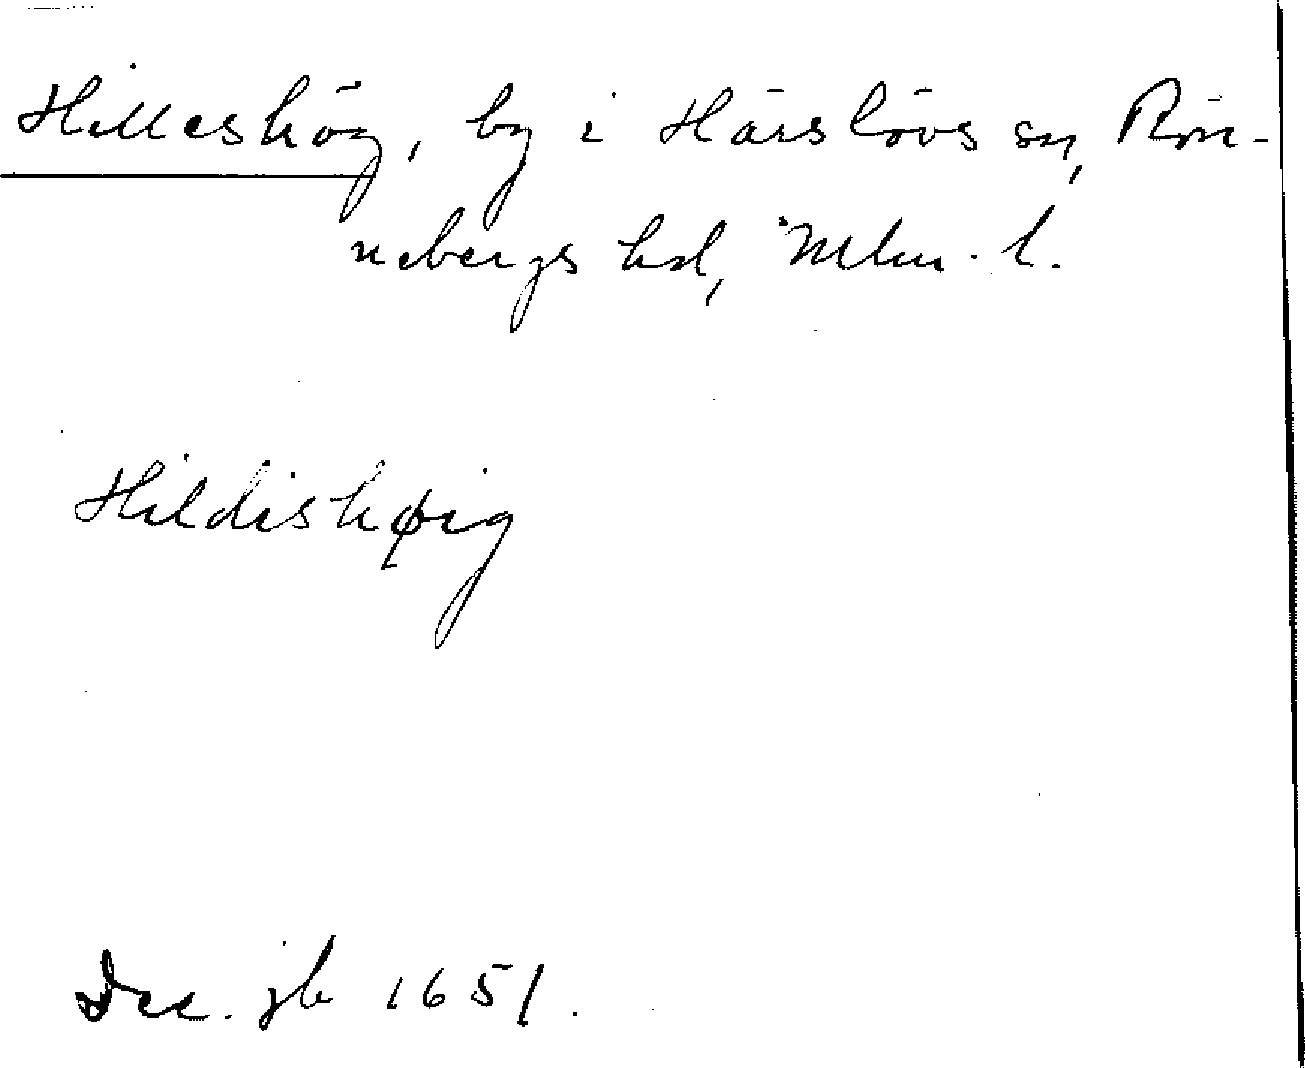 Hilleshög, by i Härslövs sn, Rön-
nebergs hd, Mlm. l.
Hildishøig
Dec. jb 1651.